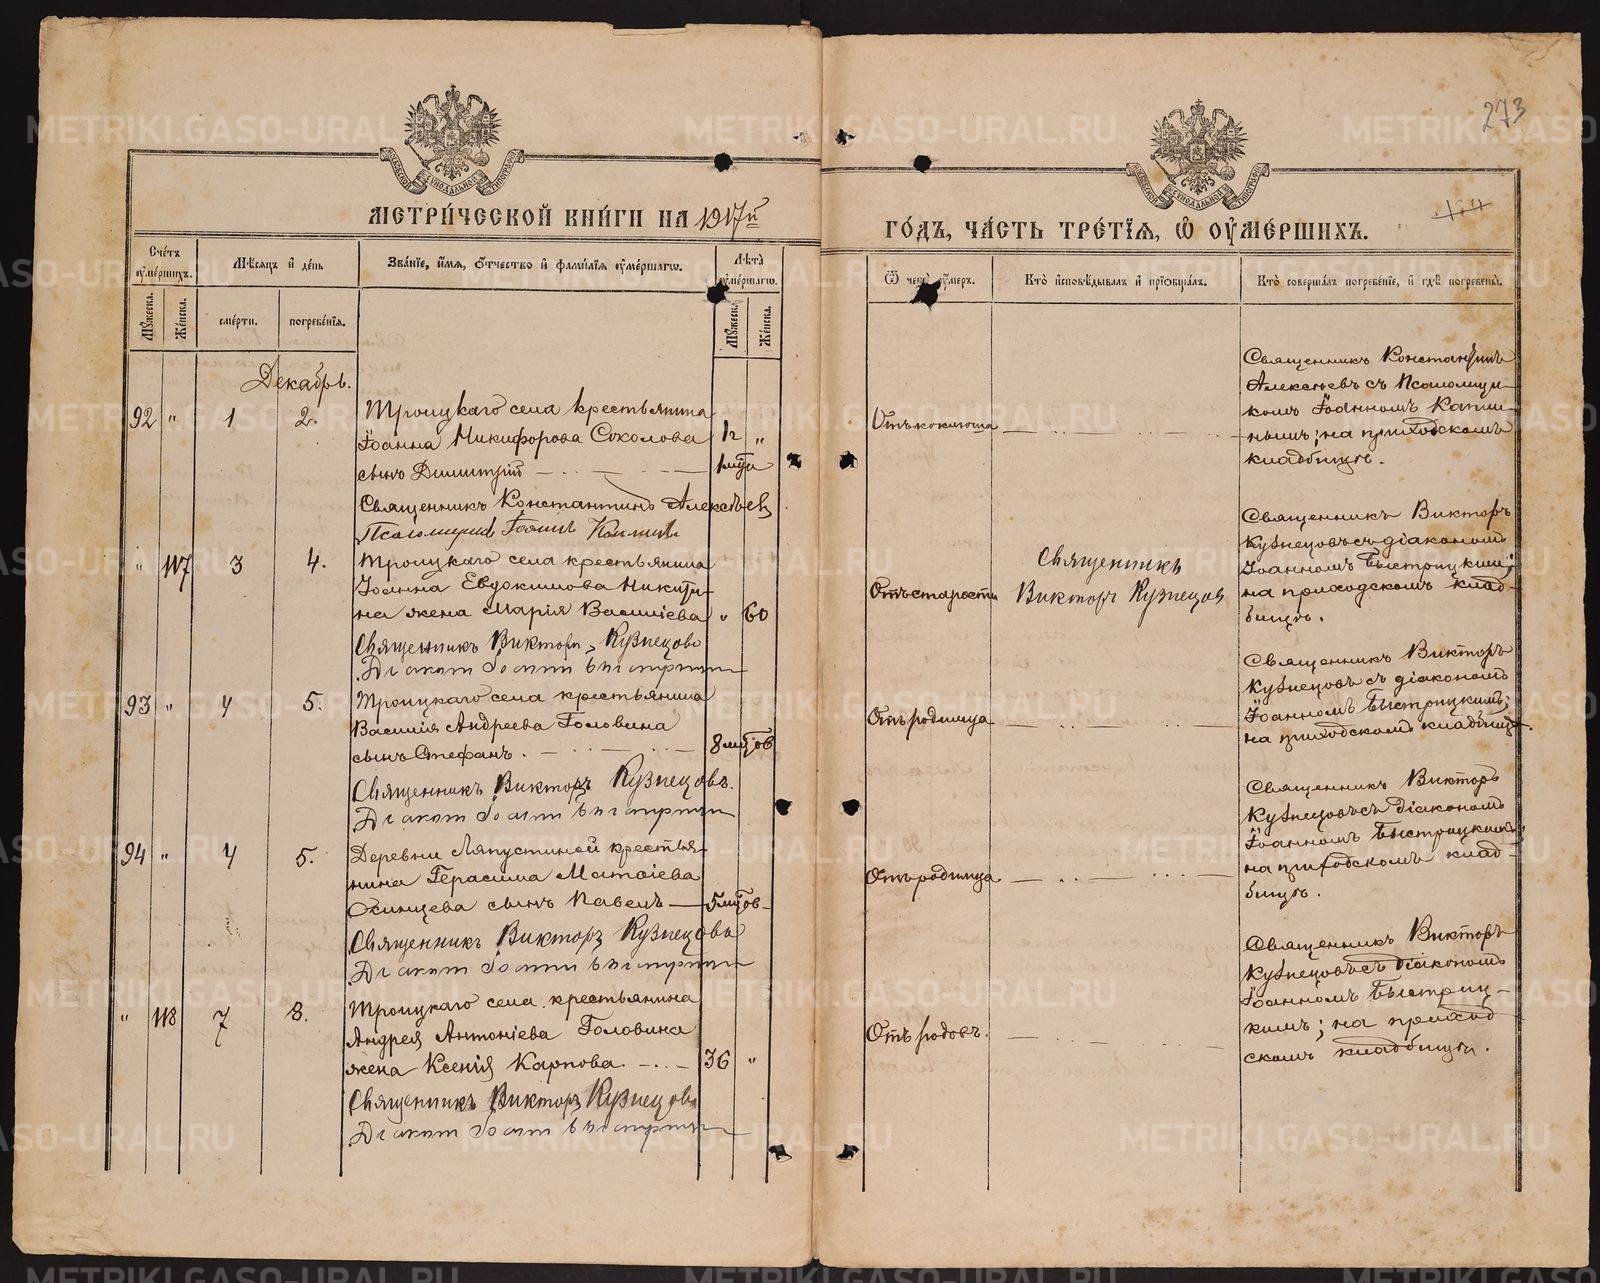 273
МЕТРИ́ЧЕСКОЙ КНИ́ГИ НА 1917й
ГО́ДЪ, ЧА́СТЬ ТРЕ́ТІѦ, Ѽ ОУМЕ́РШИХЪ.
Сче́тъ оуме́ршихъ.
Мѣ́сяцъ и де́нь
Зва́ніе, и́мѧ, о́тчество и фами́лія оуме́ршагѡ.
Лѣ́та оуме́ршагѡ.
Ѿ чегѡ̀ оу́меръ.
Кто̀ исповѣ́дывалъ и прїѡбща́лъ.
Кто̀ соверша́лъ погребе́ніе, и гдѣ̀ погребены̀.
Му́жеска.
Же́нска.
сме́рти.
погребе́нія.
Му́жеска.
Же́нска.
Декабрь.
92 " 1 2.
Троицкаго села крестьянина
Іоанна Никифорова Соколова
сынъ Димитрій
1 г "
1 мца
Отъ коклюша
Священникъ Константинъ
Алексѣевъ съ Псаломщи-
комъ Іоанномъ
на приходскомъ
кладбищѣ.
Священникъ Константинъ Алексѣев
Псаломщикъ Іоаннъ
" 117 3 4.
Троицкаго села крестьянина
Іоанна Евдокимова Никити-
на жена Марія Василіева
" 60
Отъ старости
Священникъ
Викторъ Кузнецов
Священникъ Викторъ
Кузнецовъ съ діакономъ
Іоанномъ Быстрицкимъ;
на приходскомъ клад-
бищѣ.
Священникъ Викторъ Кузнецовъ
Діаконъ Іоаннъ Быстрицкій
93 " 4 5.
Троицкаго села крестьянина
Василія Андреева Головина
сынъ Стефанъ.
8 мцовъ
Отъ родимца
Священникъ Викторъ
Кузнецовъ съ діакономъ
Іоанномъ Быстрицкимъ;
на приходскомъ кладбищѣ.
Священникъ Викторъ Кузнецовъ.
Діаконъ Іоаннъ Быстрицкій
94 " 4 5.
Деревни Ляпустиной крестья-
нина Герасима Матѳіева
Осинцева сынъ Павелъ
5 мцов
Отъ родимца
Священникъ Викторъ
Кузнецовъ съ діакономъ
Іоанномъ Быстрицкимъ;
на приходскомъ клад-
бищѣ.
Священникъ Викторъ Кузнецовъ
Діаконъ Іоаннъ Быстрицкій
" 118 7 8.
Троицкаго села крестьянина
Андрея Антоніева Головина
жена Ксенія Карпова
36 "
Отъ родовъ.
Священникъ Викторъ
Кузнецовъ съ діакономъ
Іоанномъ Быстриц-
кимъ; на приход
скомъ кладбищѣ.
Священникъ Викторъ Кузнецовъ
Діаконъ Іоаннъ Быстрицкій
METRIKI.GASO-URAL.RU